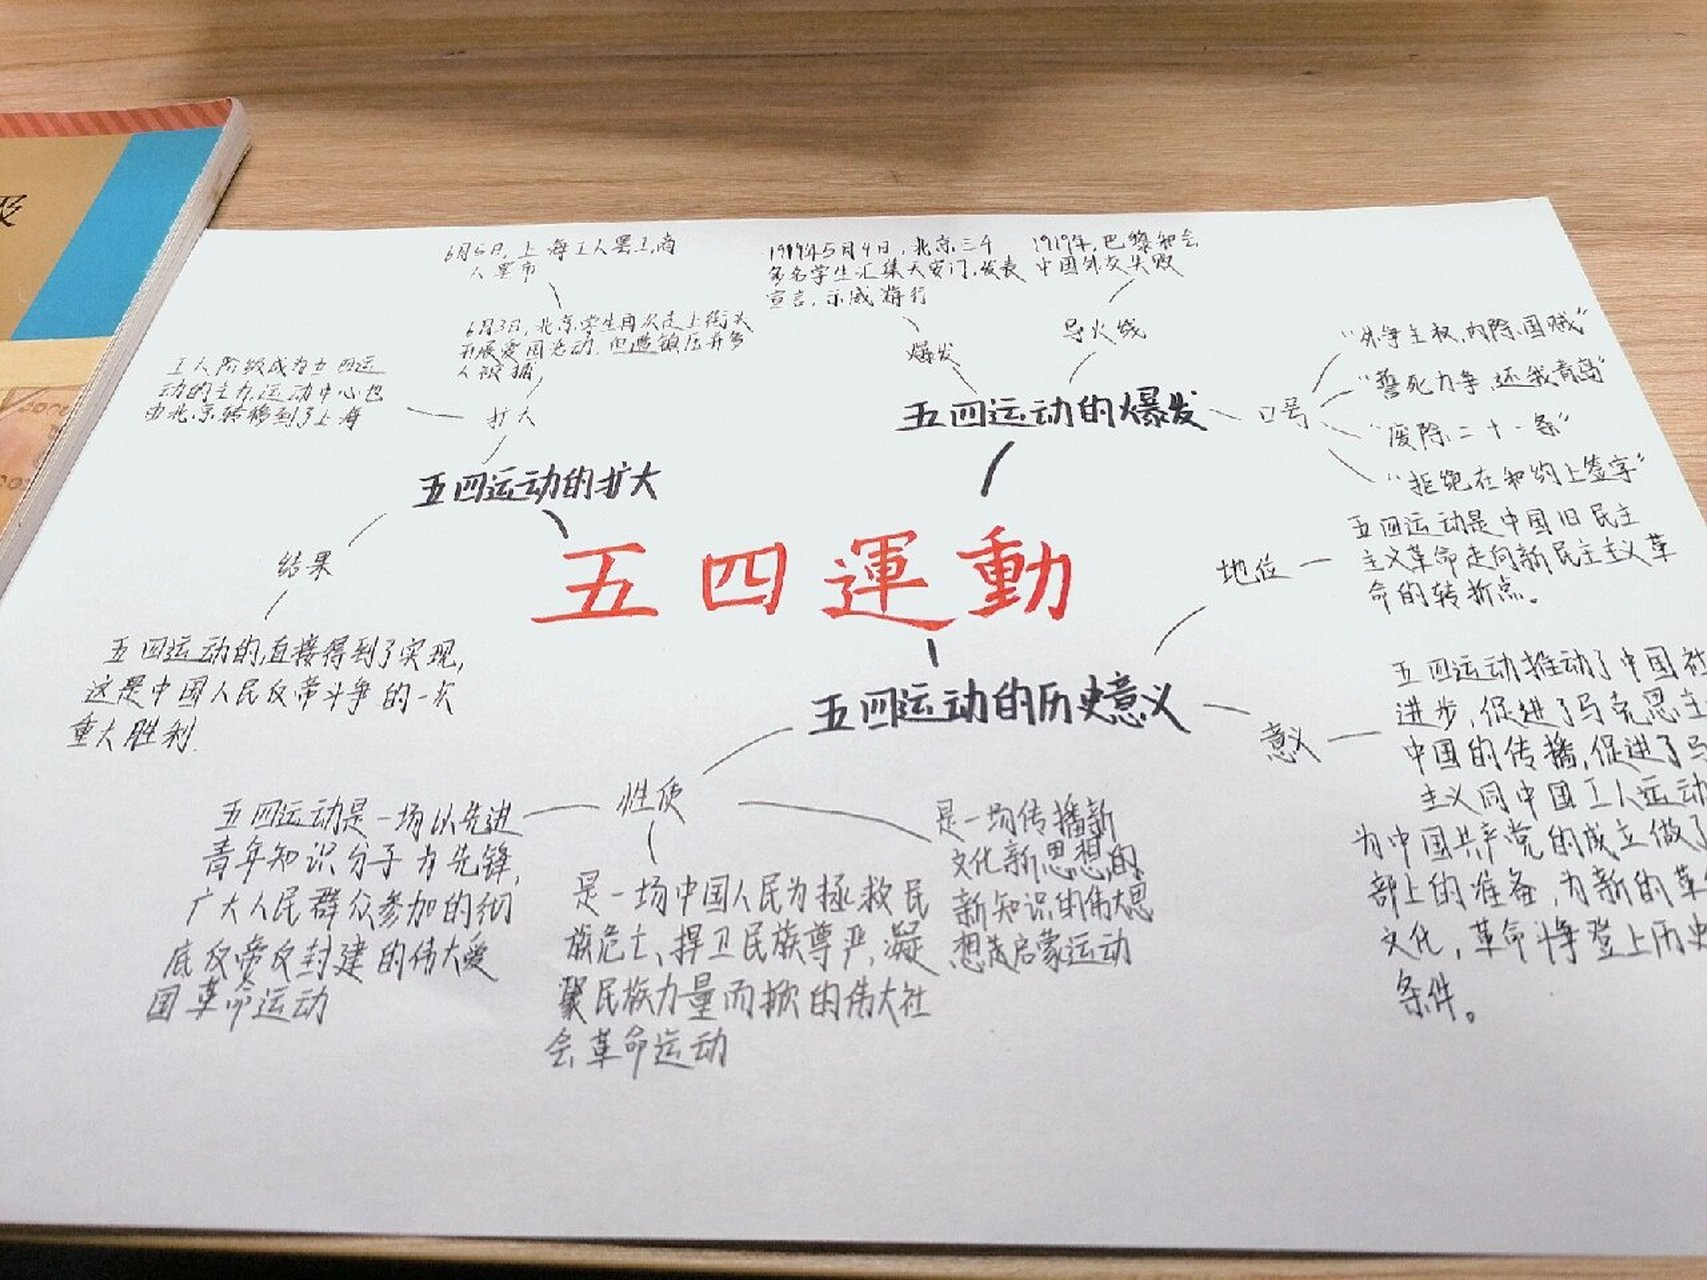 级
6月5日,上海工人罢工,商
人罢市
6月3日,北京学生再次走上街头
开展爱国活动,但遭镇压并多
人被捕
工人阶级成为五四运
动的主力,运动中心也
由北京转移到了上海
扩大
五四运动的扩大
结果
五四运动的直接得到了实现,
这是中国人民反帝斗争的一次
重大胜利.
1919年5月4日,北京三千
多名学生汇集天安门,发表
宣言,示威游行
1919年,巴黎和会
中国外交失败
爆发
导火线
五四运动的爆发
口号
“外争主权,内除国贼”
“誓死力争,还我青岛”
“废除二十一条”
“拒绝在和约上签字”
五四運動
地位
五四运动是中国旧民主
主义革命走向新民主主义革
命的转折点。
五四运动的历史意义
意义
五四运动推动了中国社
进步,促进了马克思主
中国的传播,促进了马
主义同中国工人运动
为中国共产党的成立做了
部上的准备,为新的革
文化,革命斗争登上历史
条件。
性质
五四运动是一场以先进
青年知识分子为先锋,
广大人民群众参加的彻
底反帝反封建的伟大爱
国革命运动
是一场中国人民为拯救民
族危亡、捍卫民族尊严、凝
聚民族力量而掀的伟大社
会革命运动
是一场传播新
文化新思想的
新知识的伟大思
想启蒙运动